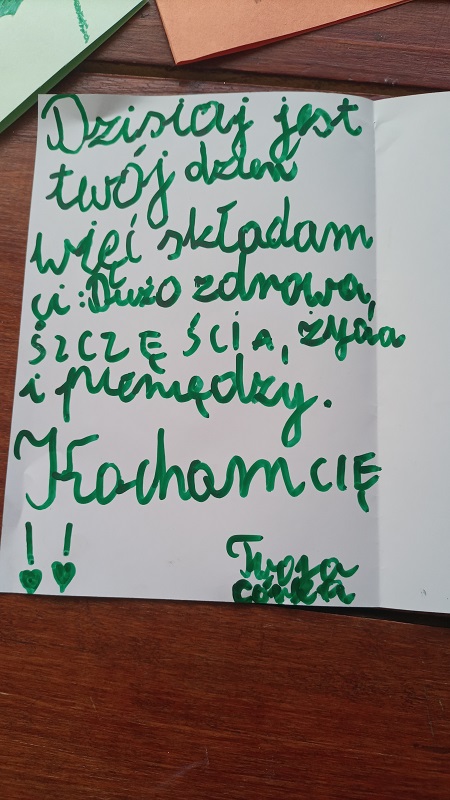 Dzisiaj jest
twój dzień
więć składam
ci: Dużo zdrowa,
SZCZĘŚCIA, życia
i pieniędzy.
Kocham CIĘ
!!
Twoja
córka